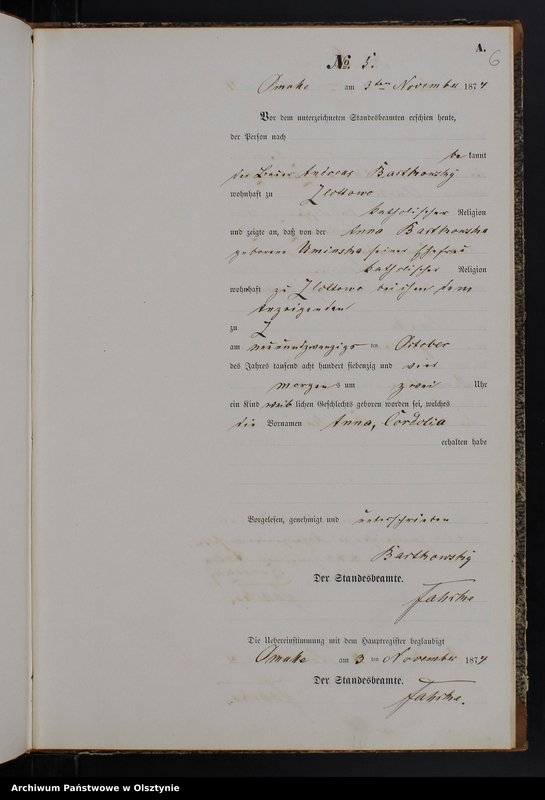 A.
6
No. 5.
Omake am 3ten November 1874.
Vor dem unterzeichneten Standesbeamten erschien heute,
der Person nach
bekannt
der Bauer Andreas Bartkowsky
wohnhaft zu Zlottowo
katholischer Religion
und zeigte an, daß von der Anna Bartkowska
geborene Uminska seiner Ehefrau
katholischer Religion
wohnhaft zu Zlottowo bei ihm dem
Anzeigenden
zu Z
am neunundzwanzigsten October
des Jahres tausend acht hundert siebenzig und vier
morgens um zwei Uhr
ein Kind weiblichen Geschlechts geboren worden sei, welches
die Vornamen Anna,
erhalten habe
Vorgelesen, genehmigt und unterschrieben
Bartkowsky
Der Standesbeamte.
Die Uebereinstimmung mit dem Hauptregister beglaubigt
Omake am 3ten November 1874
Der Standesbeamte.
Archiwum Państwowe w Olsztynie